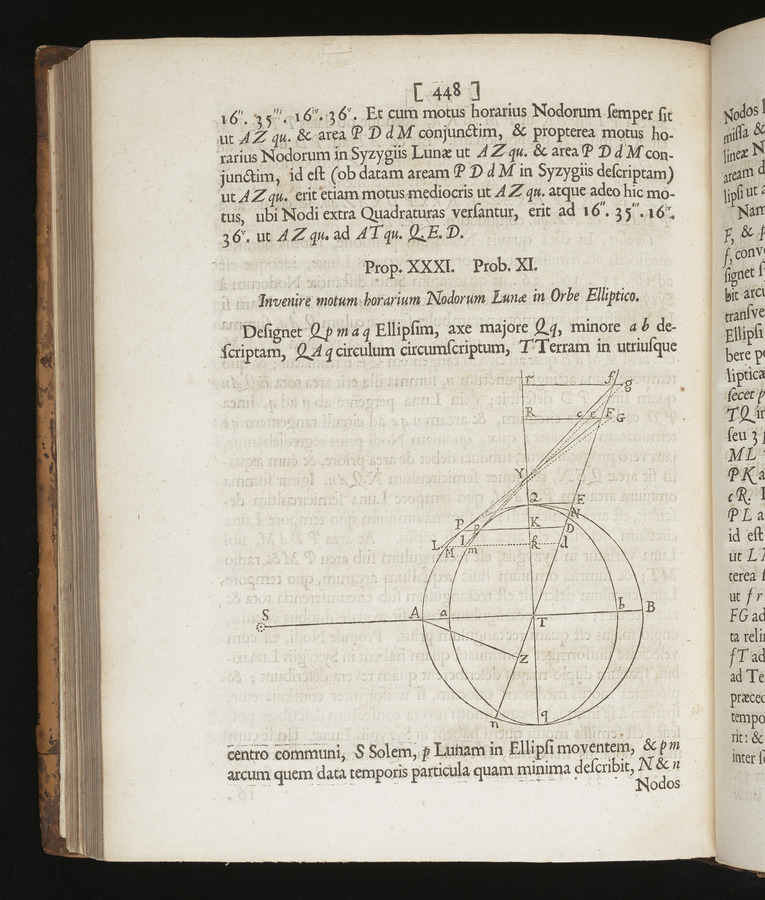 [ 448 ]
16″. 35‴. 16ⁱᵛ. 36ᵛ. Et cum motus horarius Nodorum ſemper ſit
ut AZ qu. & area P D d M conjunctim, & propterea motus ho-
rarius Nodorum in Syzygiis Lunæ ut AZ qu. & area P D d M con-
junctim, id eſt (ob datam aream P D d M in Syzygiis deſcriptam)
ut AZ qu. erit etiam motus mediocris ut AZ qu. atque adeo hic mo-
tus, ubi Nodi extra Quadraturas verſantur, erit ad 16″. 35‴. 16ⁱᵛ.
36ᵛ. ut A Z qu. ad AT qu. Q. E. D.
Prop. XXXI. Prob. XI.
Invenire motum horarium Nodorum Lunæ in Orbe Elliptico.
Deſignet Q p m a q Ellipſim, axe majore Q q, minore a b de-
ſcriptam, Q A q circulum circumſcriptum, T Terram in utriuſque
r f g
R c e F G
Y
Q E
N
P p K D
L l k d
M m
S A a b B
T
Z
n q
centro communi, S Solem, p Lunam in Ellipſi moventem, & p m
arcum quem data temporis particula quam minima deſcribit, N & n
Nodos
Nodos
miſſa &
lineæ N
aream d
lipſi ut
Nam
F, & p
f, conv
ſignet
bit arcu
tranſve
Ellipſi
bere p
liptica
ſecet p
TQ in
ſeu 3
ML
PK a
c R.
PL a
id eſt
ut L
terea
ut f r
FG ad
ta reli
f T ad
ad Te
præced
tempo
rit: &
inter